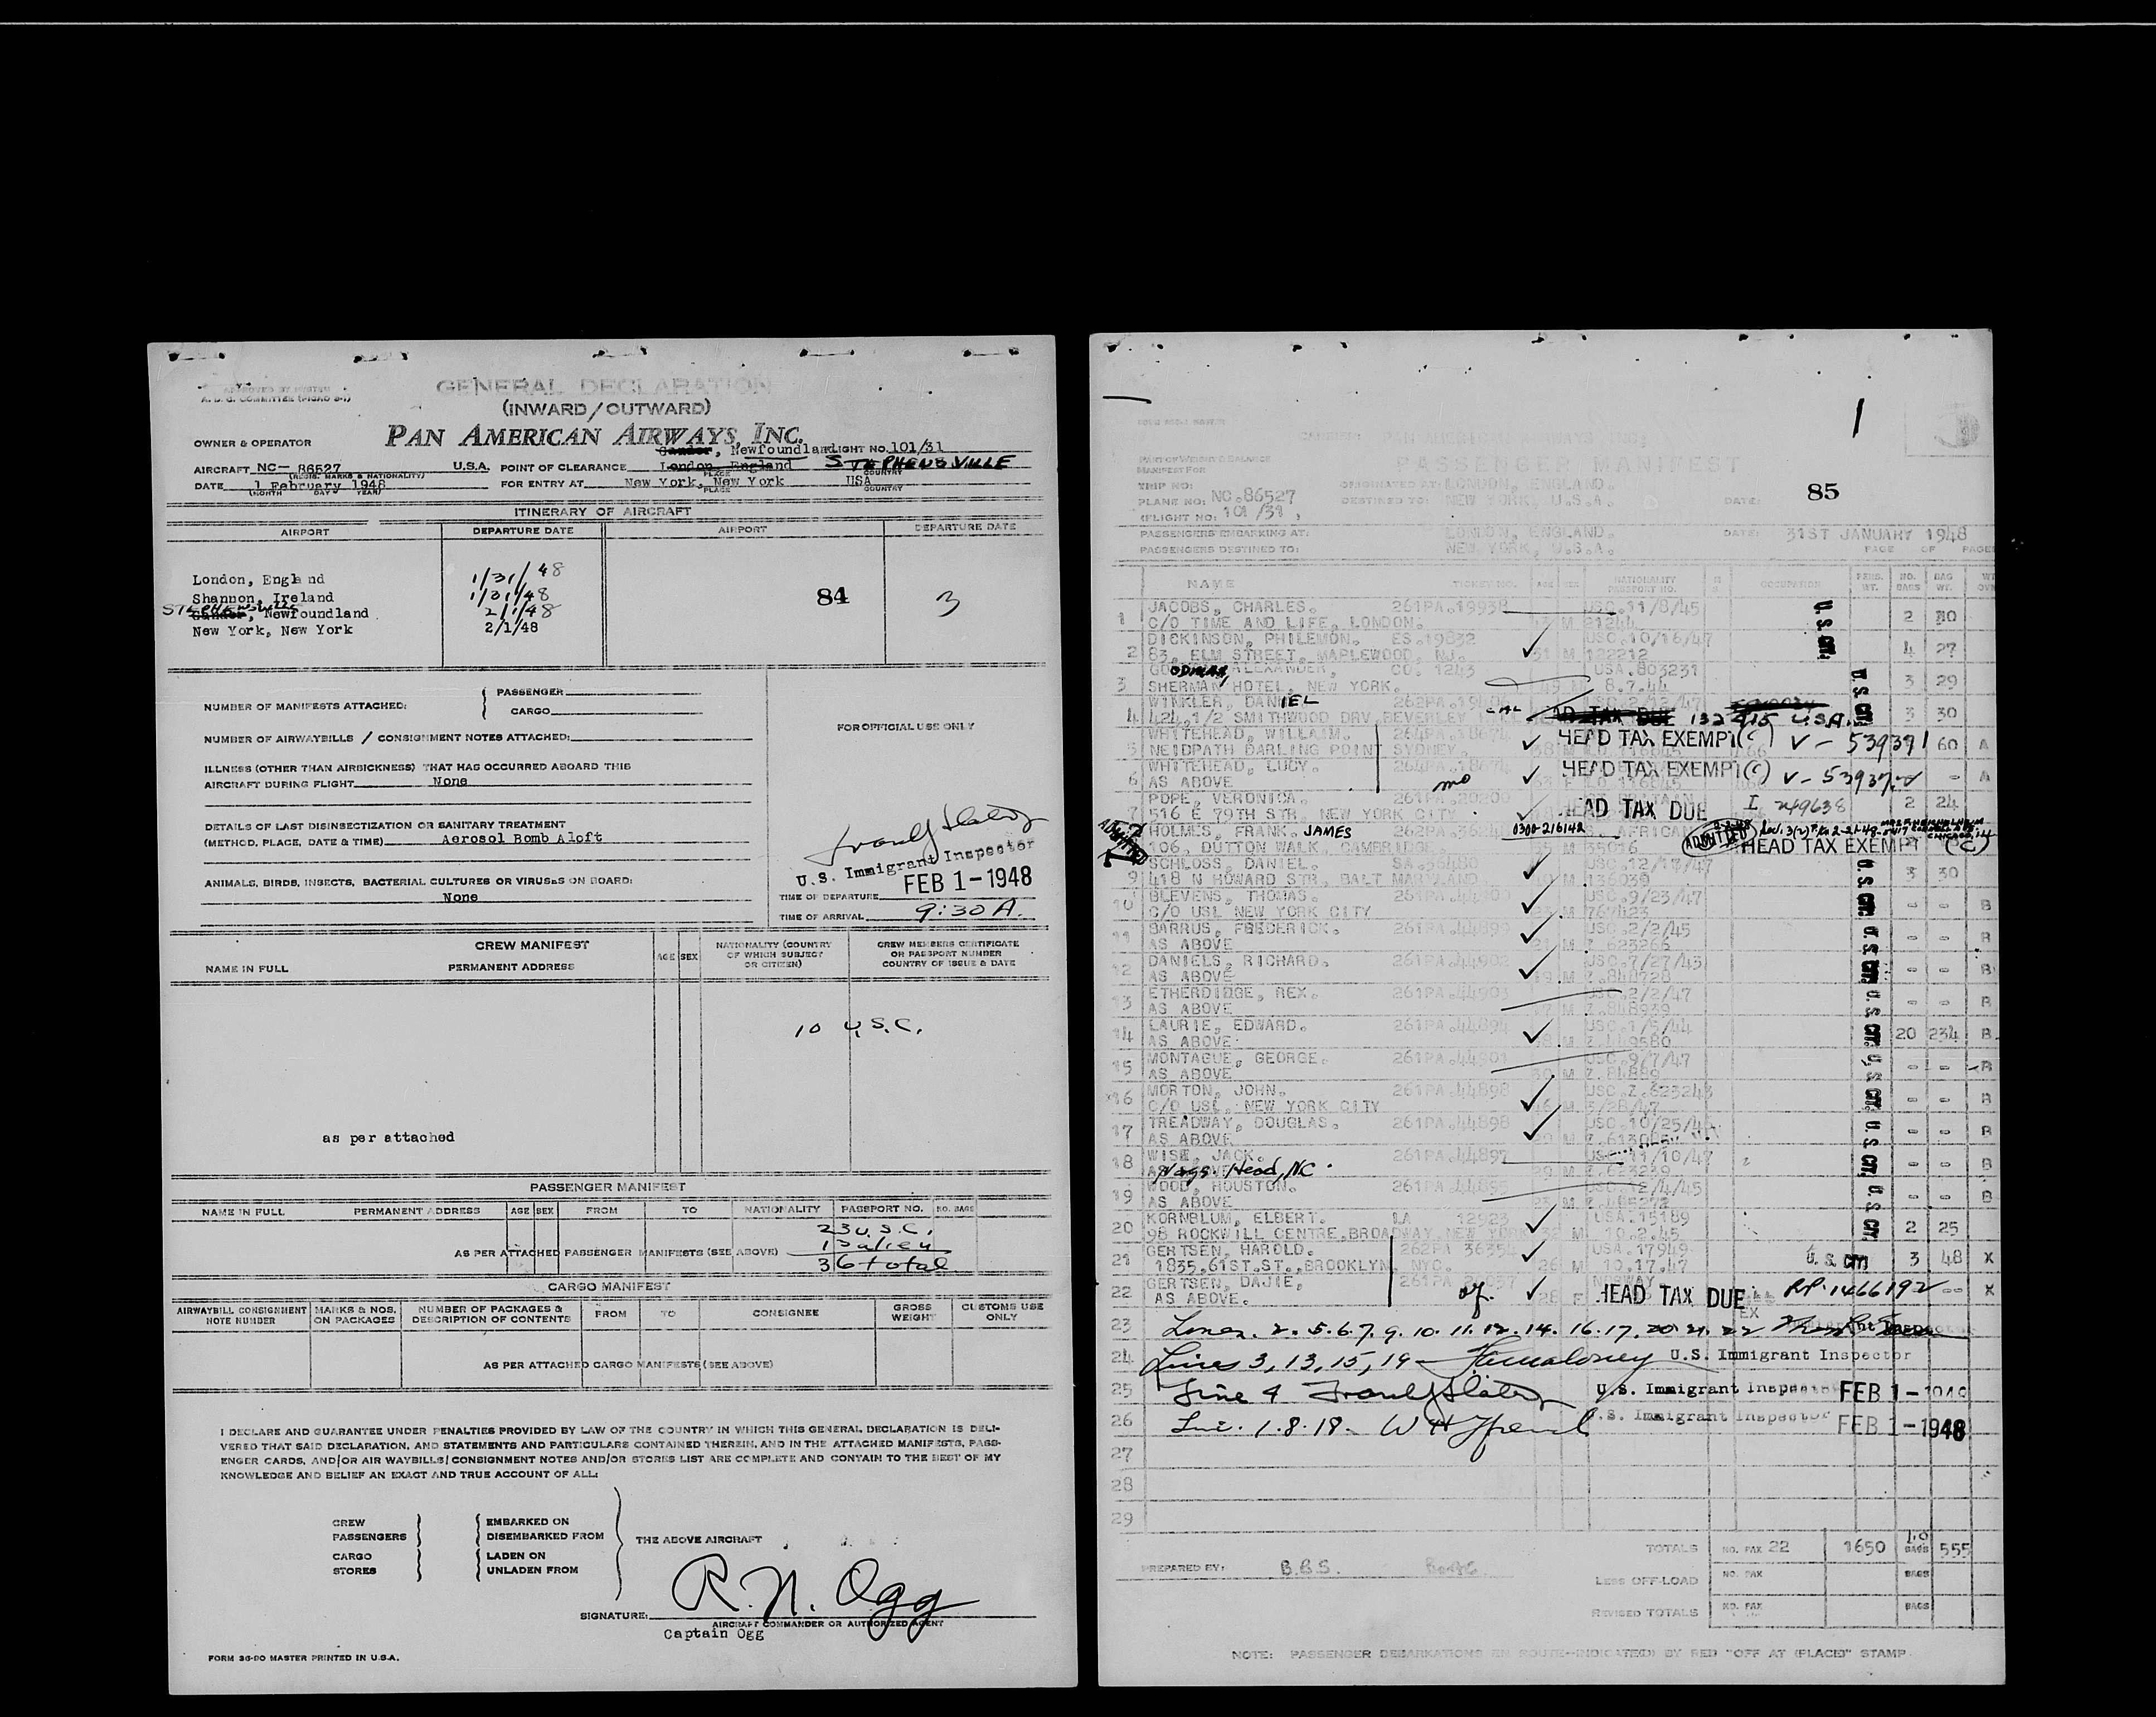 GENERAL DECLARATION
(INWARD/OUTWARD)
OWNER & OPERATOR PAN AMERICAN AIRWAYS, INC.
Gander, Newfoundland FLIGHT NO. 101/31
AIRCRAFT NC- 86527 U.S.A. POINT OF CLEARANCE London England STEPHENSVILLE
(REGIS. MARKS & NATIONALITY) PLACE COUNTRY
DATE 1 February 1948 FOR ENTRY AT New York, New York USA
(MONTH DAY YEAR) PLACE COUNTRY
ITINERARY OF AIRCRAFT
AIRPORT DEPARTURE DATE AIRPORT DEPARTURE DATE
London, England 1/31/48
Shannon, Ireland 1/31/48 84 3
STEPHENSVILLE
Gander, Newfoundland 2/1/48
New York, New York 2/1/48
NUMBER OF MANIFESTS ATTACHED: PASSENGER
CARGO
FOR OFFICIAL USE ONLY
NUMBER OF AIRWAYBILLS / CONSIGNMENT NOTES ATTACHED:
ILLNESS (OTHER THAN AIRSICKNESS) THAT HAS OCCURRED ABOARD THIS
AIRCRAFT DURING FLIGHT None
DETAILS OF LAST DISINSECTIZATION OR SANITARY TREATMENT
(METHOD, PLACE, DATE & TIME) Aerosol Bomb Aloft
U.S. Immigrant Inspector
ANIMALS, BIRDS, INSECTS, BACTERIAL CULTURES OR VIRUSES ON BOARD:
FEB 1-1948
None
TIME OF DEPARTURE
TIME OF ARRIVAL 9:30 A.
CREW MANIFEST
NAME IN FULL PERMANENT ADDRESS AGE SEX NATIONALITY (COUNTRY OF WHICH SUBJECT OR CITIZEN) CREW MEMBERS CERTIFICATE OR PASSPORT NUMBER COUNTRY OF ISSUE & DATE
10 U.S.C.
as per attached
PASSENGER MANIFEST
NAME IN FULL PERMANENT ADDRESS AGE SEX FROM TO NATIONALITY PASSPORT NO. NO. BAGS
23 U.S.C.
13 alien
AS PER ATTACHED PASSENGER MANIFESTS (SEE ABOVE)
36 total
CARGO MANIFEST
AIRWAYBILL CONSIGNMENT NOTE NUMBER MARKS & NOS. ON PACKAGES NUMBER OF PACKAGES & DESCRIPTION OF CONTENTS FROM TO CONSIGNEE GROSS WEIGHT CUSTOMS USE ONLY
AS PER ATTACHED CARGO MANIFESTS (SEE ABOVE)
I DECLARE AND GUARANTEE UNDER PENALTIES PROVIDED BY LAW OF THE COUNTRY IN WHICH THIS GENERAL DECLARATION IS DELI-
VERED THAT SAID DECLARATION, AND STATEMENTS AND PARTICULARS CONTAINED THEREIN, AND IN THE ATTACHED MANIFESTS, PASS-
ENGER CARDS, AND/OR AIR WAYBILLS/CONSIGNMENT NOTES AND/OR STORES LIST ARE COMPLETE AND CONTAIN TO THE BEST OF MY
KNOWLEDGE AND BELIEF AN EXACT AND TRUE ACCOUNT OF ALL:
CREW EMBARKED ON
PASSENGERS DISEMBARKED FROM THE ABOVE AIRCRAFT
CARGO LADEN ON
STORES UNLADEN FROM
SIGNATURE: R. N. Ogg
AIRCRAFT COMMANDER OR AUTHORIZED AGENT
Captain Ogg
FORM 36-90 MASTER PRINTED IN U.S.A.
CARRIER: PAN AMERICAN AIRWAYS INC.
PART OF WEIGHT & BALANCE MANIFEST FOR
PASSENGER MANIFEST
TRIP NO: ORIGINATED AT: LONDON, ENGLAND.
PLANE NO: NC.86527 DESTINED TO: NEW YORK, U.S.A. DATE: 85
(FLIGHT NO: 101/31)
PASSENGERS EMBARKING AT: LONDON, ENGLAND. DATE: 31ST JANUARY 1948
PASSENGERS DESTINED TO: NEW YORK, U.S.A. PAGE OF PAGES
NAME TICKET NO. AGE SEX NATIONALITY PASSPORT NO. OCCUPATION PERS. WT. NO. BAGS BAG WT.
1 JACOBS, CHARLES. 261PA.19938 USC.11/8/45
C/O TIME AND LIFE, LONDON. M 21244 U.S. CIT. 2
2 DICKINSON, PHILEMON. ES.19832 USC.10/16/47
83, ELM STREET, MAPLEWOOD, NJ. 31 M 122212 4 27
3 GOODMAN, ALEXANDER, CO. 1243 USA.803231
SHERMAN HOTEL, NEW YORK. 49 8.7.44 U.S. CIT. 3 29
4 WINKLER, DANIEL
424,1/2 SMITHWOOD DRV, BEVERLEY 132415 U.S.A. 3 30
5 WHITEHEAD, WILLAIM. 264PA.18674 HEAD TAX EXEMPT (C) V-539391
NEIDPATH DARLING POINT SYDNEY. 60 A
6 WHITEHEAD, LUCY. 264PA.18674 HEAD TAX EXEMPT (C)
AS ABOVE - A
7 POPE, VERONICA. 261PA.20200 HEAD TAX DUE I. 249638
516 E 79TH STR. NEW YORK CITY 2 24
8 HOLMES, FRANK. JAMES 0300-216142 AFRICAN ADMITTED
106, DUTTON WALK, CAMBRIDGE. M 35016 HEAD TAX EXEMPT (C)
9 SCHLOSS, DANIEL. SA.36480
418 N HOWARD STR, BALT MARYLAND M 136039 U.S. CIT. 3 30
10 BLEVENS, THOMAS. USC.9/23/47
C/O USL NEW YORK CITY M 767423 - - B
11 BARRUS, FREDERICK. 261PA.44899 USC.2/2/45
AS ABOVE M Z.623266 U.S. CIT. - - B
12 DANIELS, RICHARD. 261PA.44902 USC.7/27/43
AS ABOVE M Z.848728 - - B
13 ETHERDIDGE, REX. 261PA.44903 USC.2/2/47
AS ABOVE M Z.848939 U.S. CIT. - - B
14 LAURIE, EDWARD. 261PA.44894 USC.1/5/44
AS ABOVE M Z.449580 20 234 B
15 MONTAGUE, GEORGE. 261PA.44901 USC.9/7/47
AS ABOVE M Z.84889 U.S. CIT. - - B
16 MORTON, JOHN. 261PA.44898 USC.Z.623243
C/O USL, NEW YORK CITY M 3/28/47 - - B
17 TREADWAY, DOUGLAS. 261PA.44898 USC.10/25/45
AS ABOVE M U.S. CIT. - - B
18 WISE, JACK. 261PA.44897 USC.11/10/47
Nags Head, NC. 29 M Z.623239 - - B
19 WOOD, HOUSTON. 261PA.44895
AS ABOVE 23 M U.S. CIT. - - B
20 KORNBLUM, ELBERT. LA 12923 USA.15189
98 ROCKWILL CENTRE, BROADWAY, NEW YORK M 10.2.45 2 25
21 GERTSEN, HAROLD. 262PA 36354 USA.17949
1835,61ST.ST., BROOKLYN, NYC. 26 M 10.17.47 U.S. CIT. 3 48 X
22 GERTSEN, DAJIE, NORWAY.
AS ABOVE. 28 F HEAD TAX DUE RP.1466192 -- X
23 Lines. 2. 5. 6. 7. 9. 10. 11. 12. 14. 16. 17. 20. 21. 22
24 Lines 3, 13, 15, 19 U.S. Immigrant Inspector
25 Line 4 U.S. Immigrant Inspector FEB 1-1948
26 Line. 1. 8. 18. U.S. Immigrant Inspector FEB 1-1948
27
28
29
TOTALS NO. PAX 22 1650 BAGS 555
PREPARED BY: B.B.S. LESS OFF-LOAD NO. PAX BAGS
REVISED TOTALS NO. PAX BAGS
NOTE: PASSENGER DEBARKATIONS EN ROUTE—INDICATED BY RED "OFF AT (PLACE)" STAMP